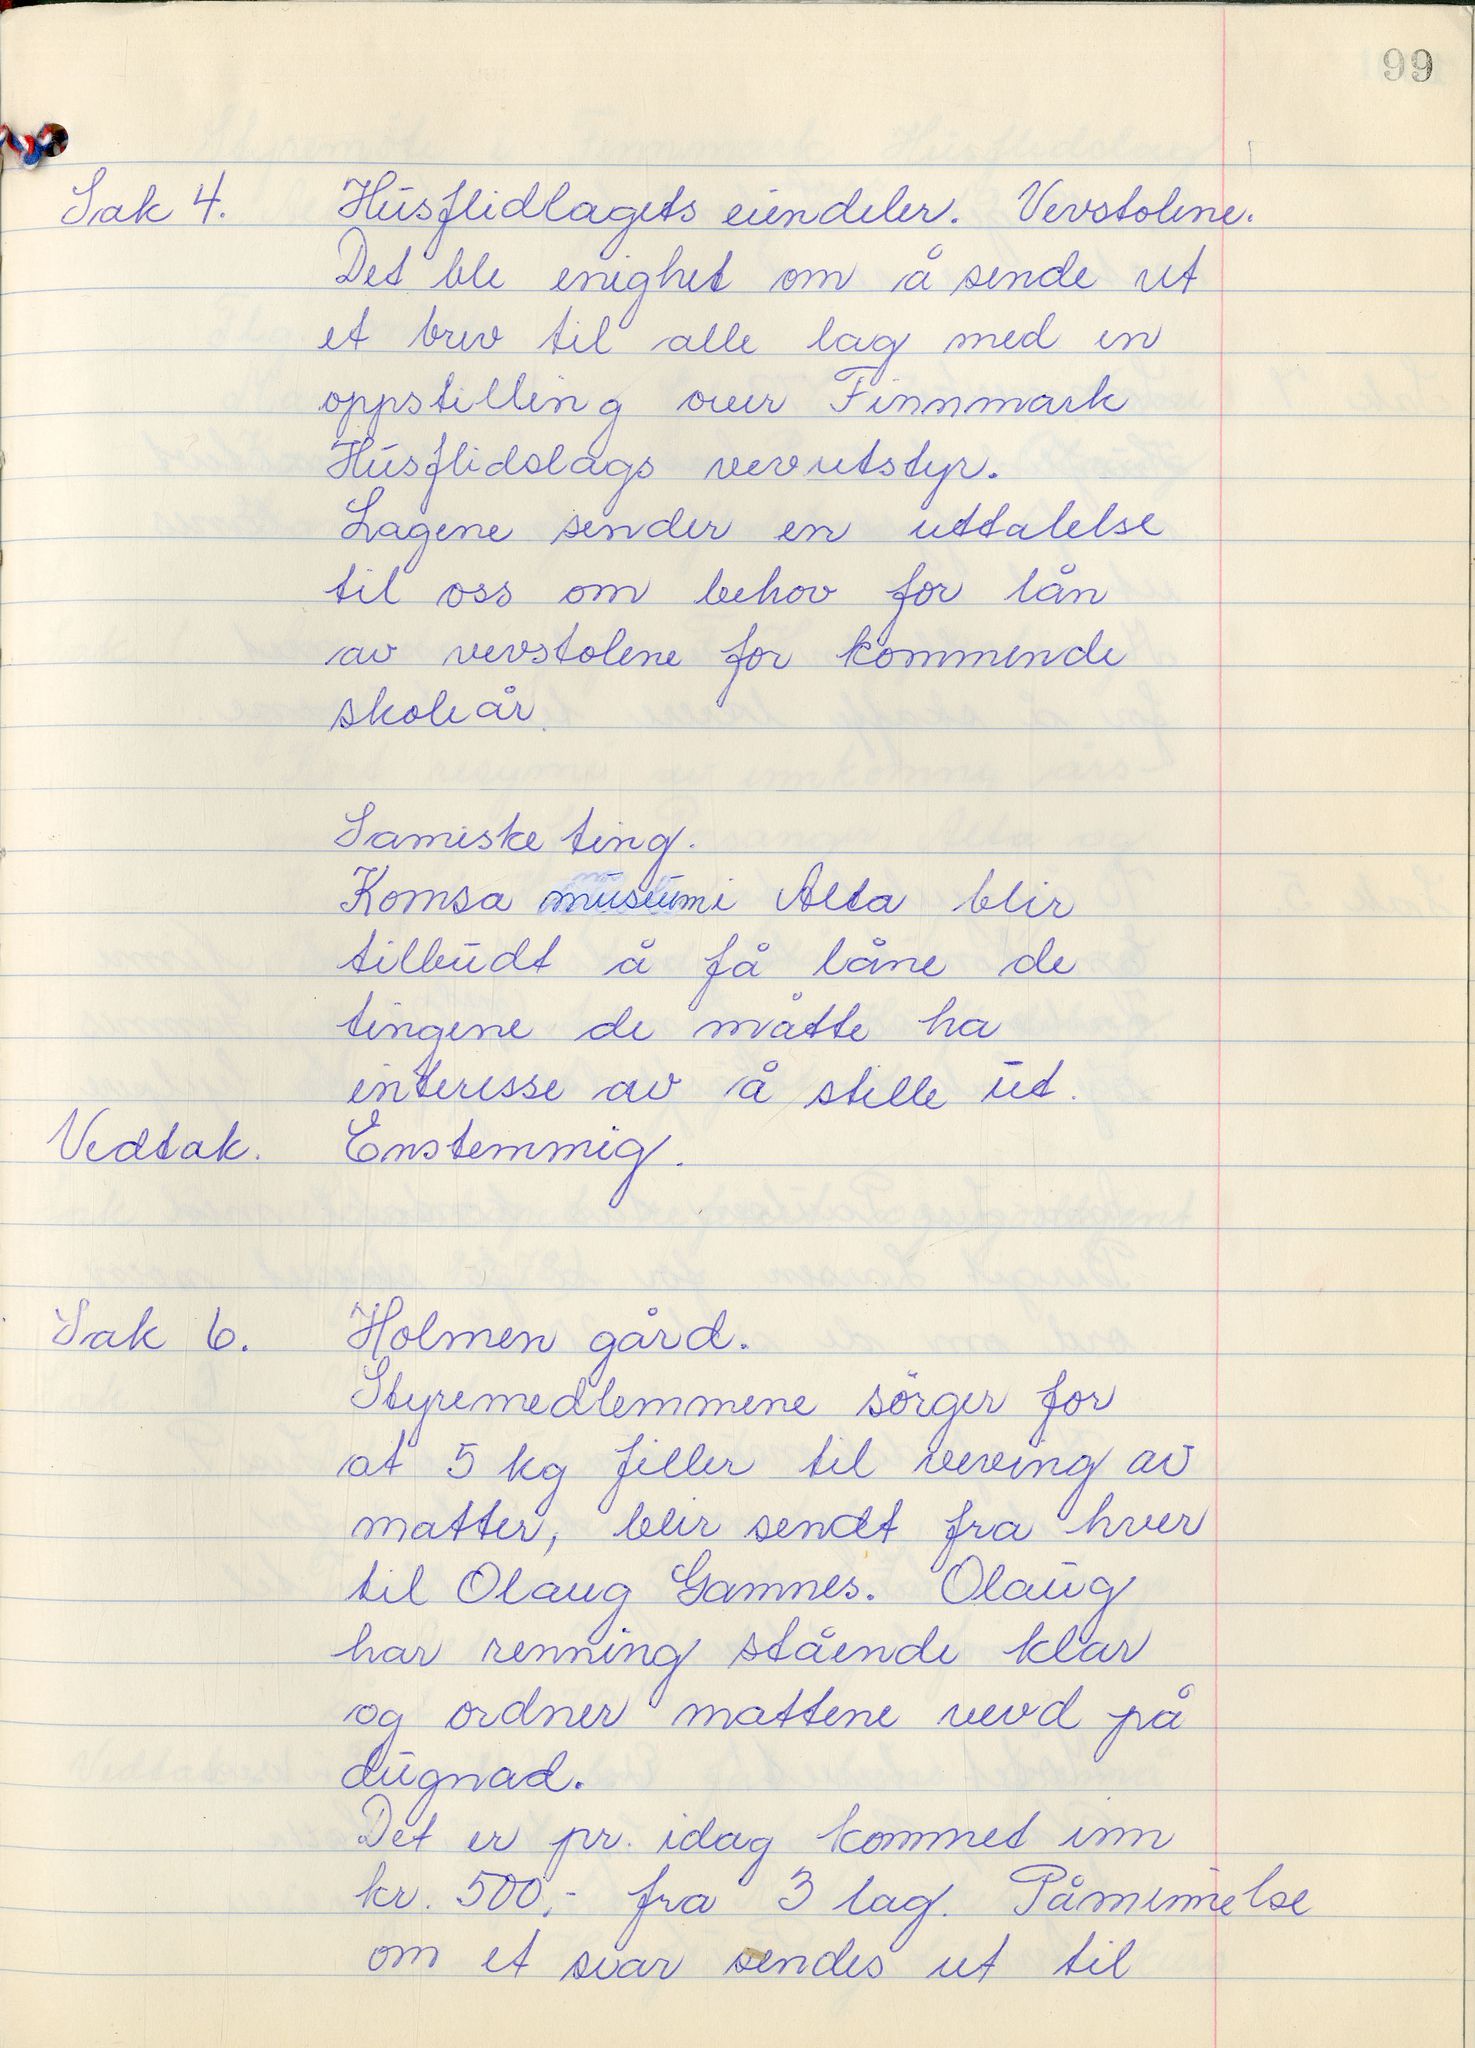 99
Sak 4. Husflidlagets eiendeler. Vevstolene.
Det ble enighet om å sende ut
et brev til alle lag med en
oppstilling over Finnmark
Husflidslags vevutstyr.
Lagene sender en uttalelse
til oss om behov for lån
av vevstolene for kommende
skoleår.
Samiske ting.
Komsa museum i Alta blir
tilbudt å få låne de
tingene de måtte ha
interesse av å stille ut.
Vedtak. Enstemmig.
Sak 6. Holmen gård.
Styremedlemmene sörger for
at 5 kg filler til veving av
matter, blir sendt fra hver
til Olaug Gamnes. Olaug
har renning stående klar
og ordner mattene vevd på
dugnad.
Det er pr. idag kommet inn
kr. 500,- fra 3 lag. Påminnelse
om et svar sendes ut til